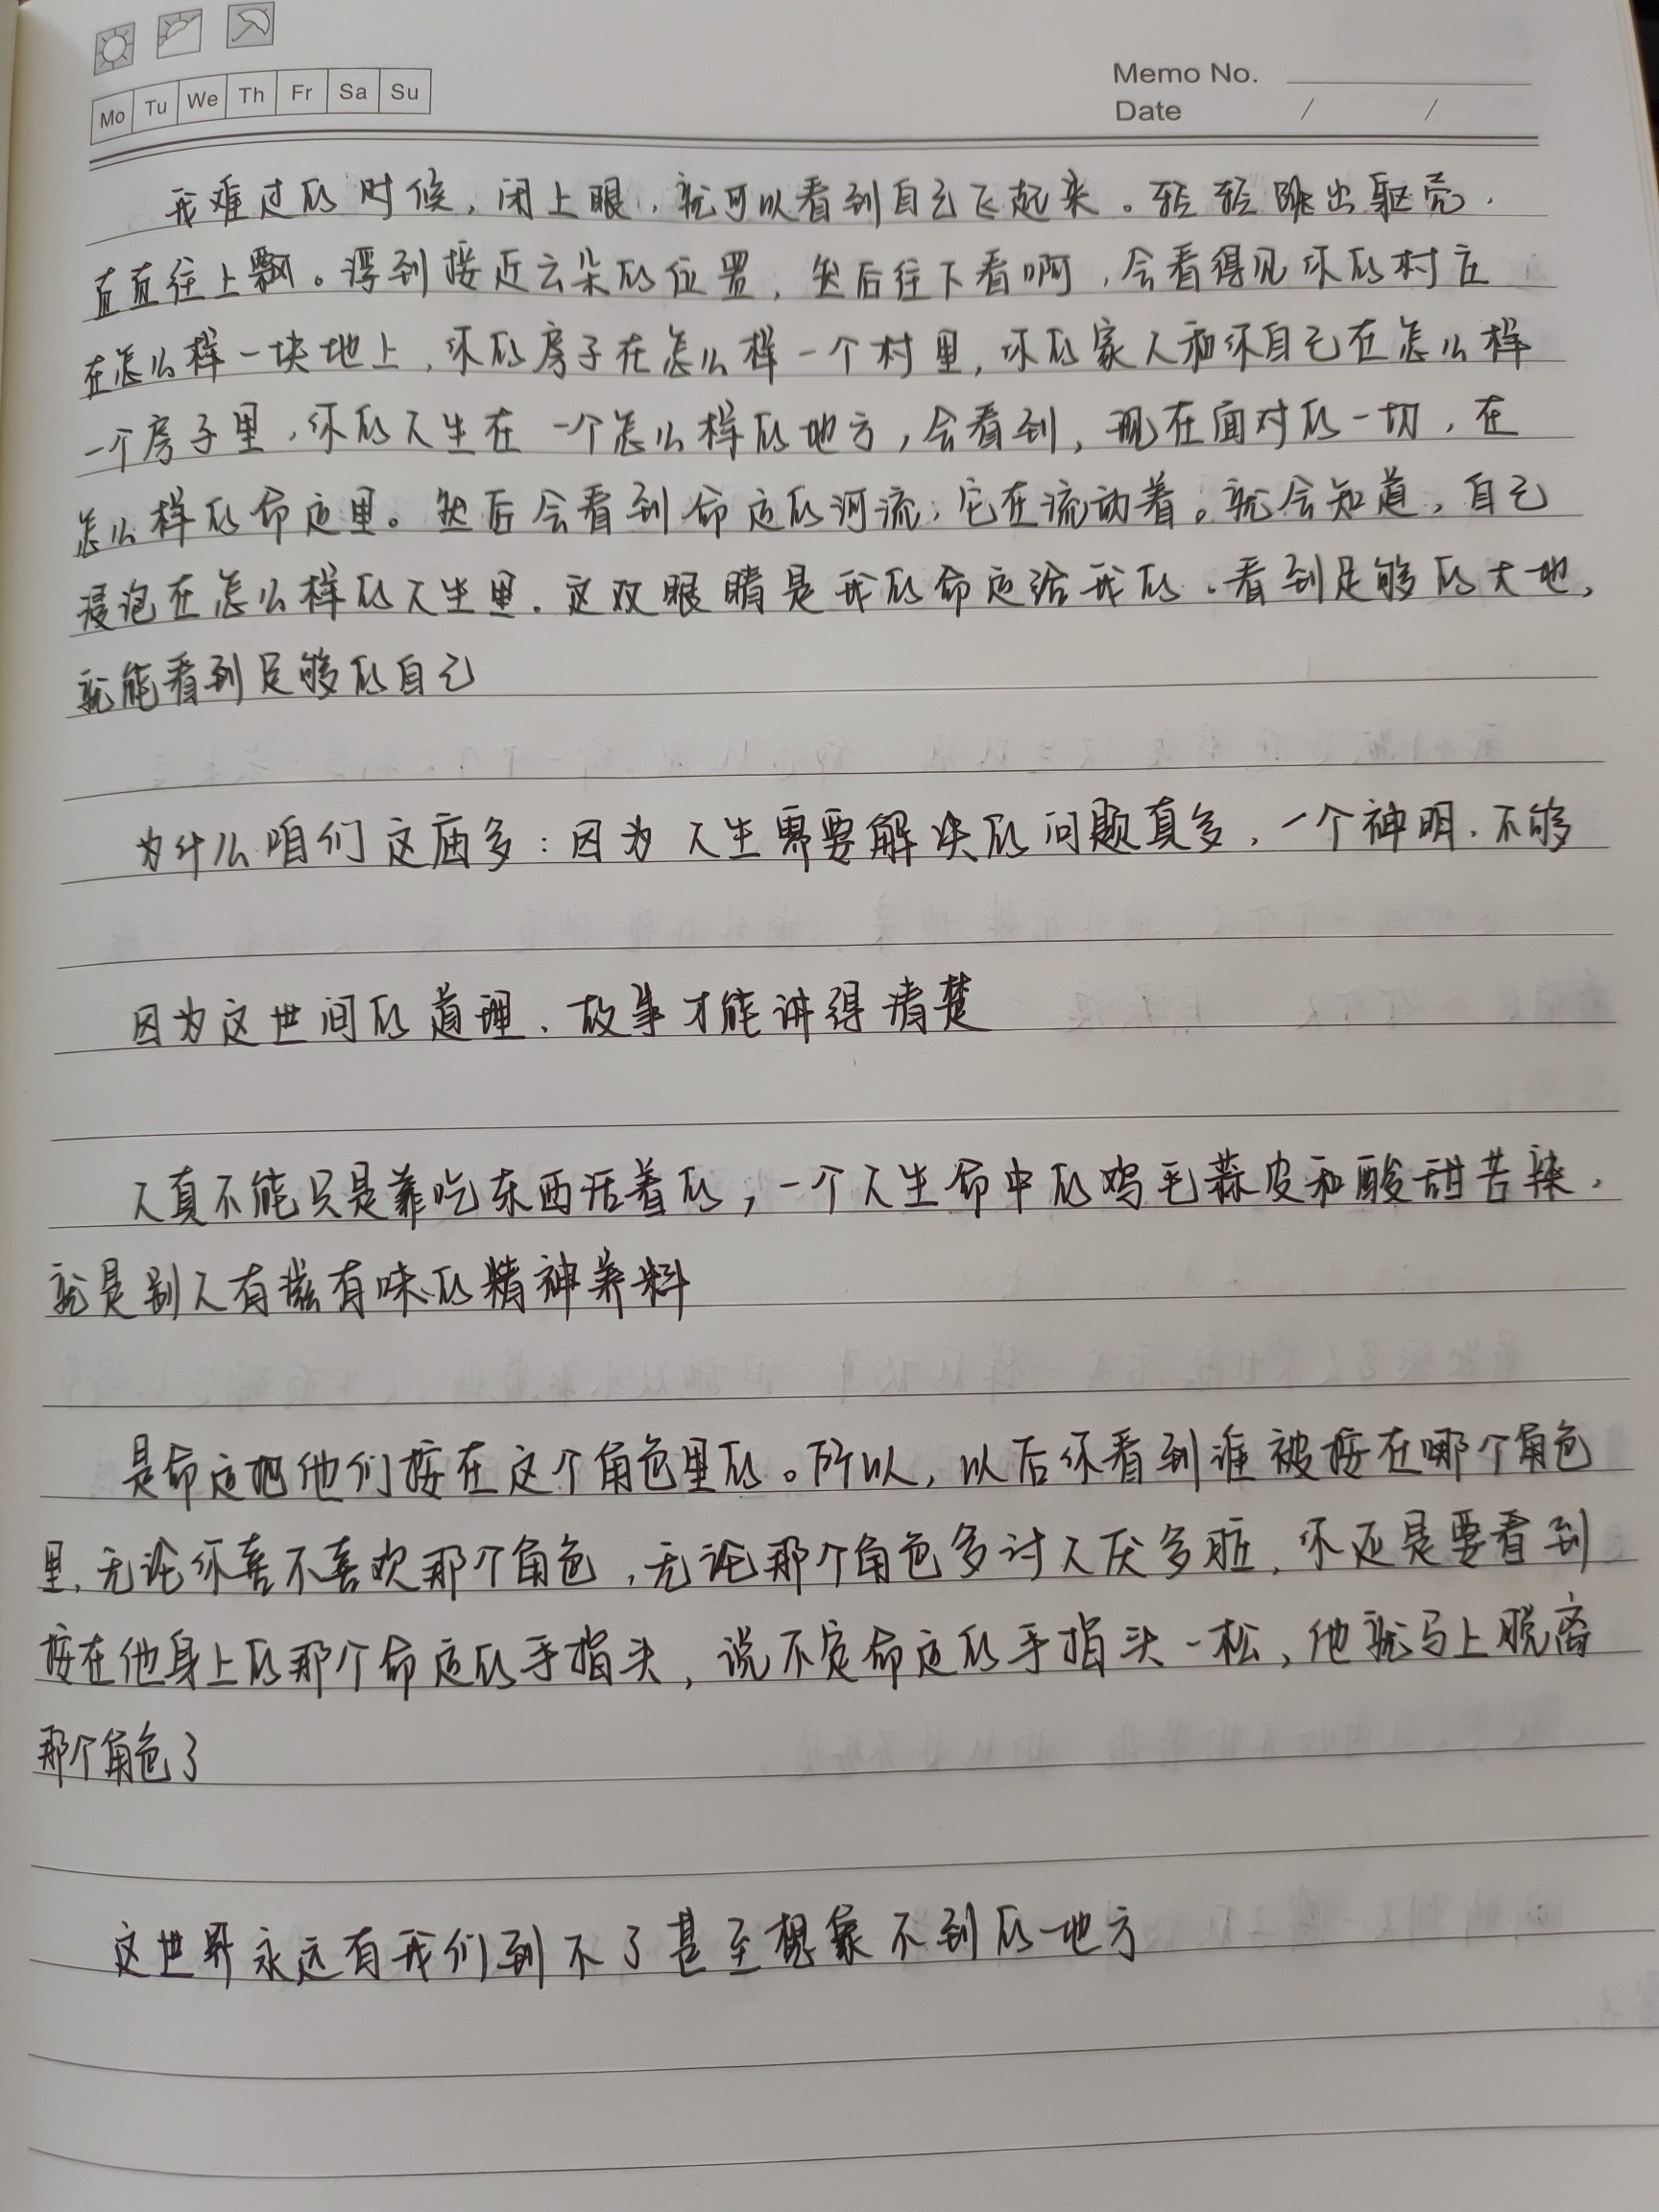 Mo Tu We Th Fr Sa Su
Memo No.
Date / /
我难过的时候，闭上眼，就可以看到自己飞起来。轻轻跳出躯壳，
直直往上飘。浮到接近云朵的位置，然后往下看啊，会看得见你的村庄
在怎么样一块地上，你的房子在怎么样一个村里，你的家人和你自己在怎么样
一个房子里，你的人生在一个怎么样的地方，会看到，现在面对的一切，在
怎么样的命运里。然后会看到命运的河流，它在流动着。就会知道，自己
浸泡在怎么样的人生里。这双眼睛是我的命运给我的。看到足够的大地，
就能看到足够的自己
为什么咱们这庙多：因为人生需要解决的问题真多，一个神明，不够
因为这世间的道理，故事才能讲得清楚
人真不能只是靠吃东西活着的，一个人生命中的鸡毛蒜皮和酸甜苦辣，
就是别人有滋有味的精神养料
是命运把他们按在这个角色里的。所以，以后你看到谁被按在哪个角色
里，无论你喜不喜欢那个角色，无论那个角色多讨人厌多脏，你还是要看到
按在他身上的那个命运的手指头，说不定命运的手指头一松，他就马上脱离
那个角色了
这世界永远有我们到不了甚至想象不到的地方